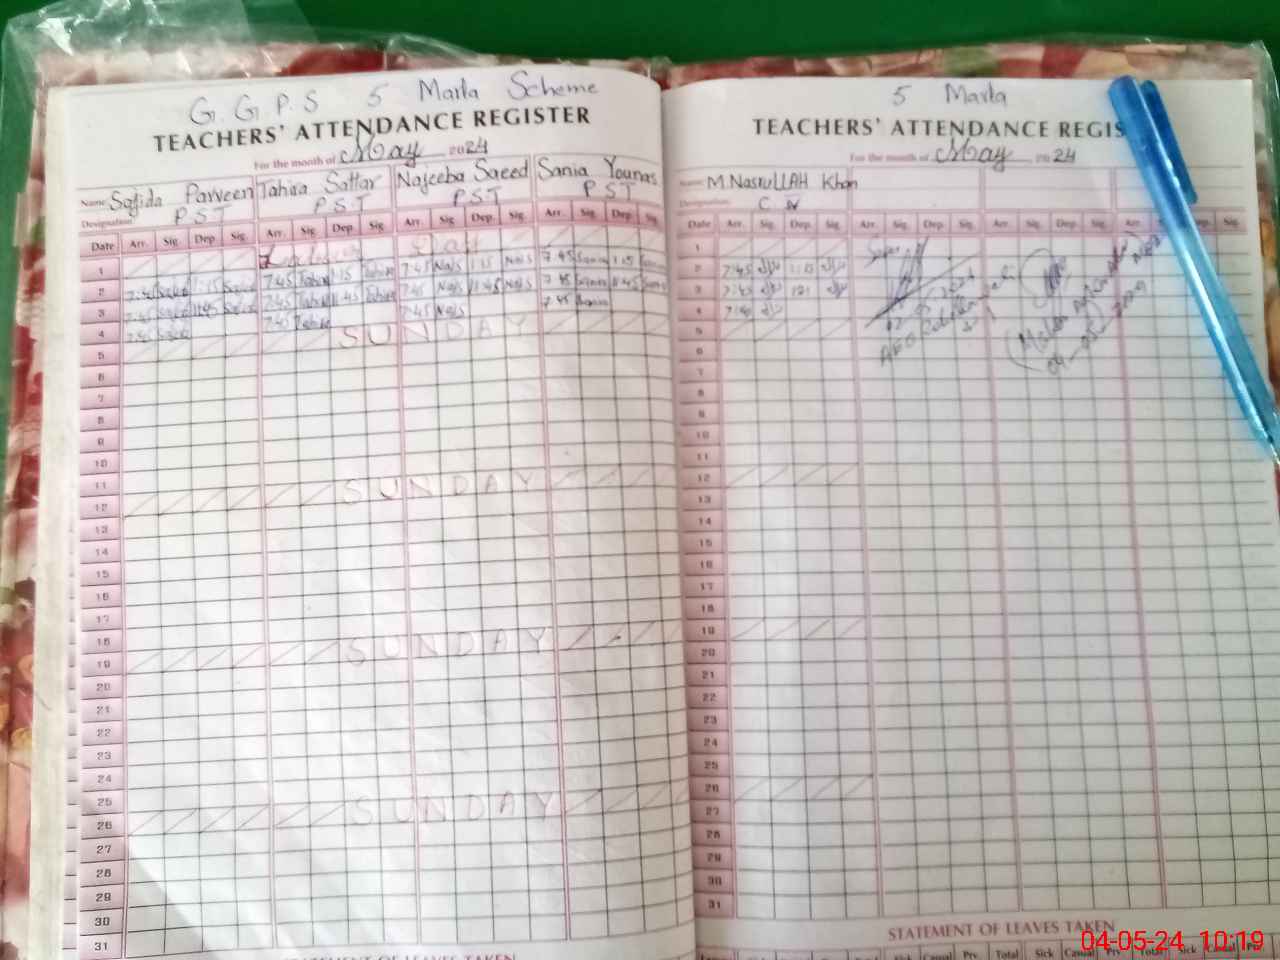 G.G.P.S 5 Marla Scheme
TEACHERS' ATTENDANCE REGISTER
For the month of May 2024
Name Sajida Parveen Tahira Sattar Najeeba Saeed Sania Younas
Designation P S T P S T P S T P S T
Date Arr. Sig. Dep. Sig. Arr. Sig. Dep. Sig. Arr. Sig. Dep. Sig. Arr. Sig. Dep. Sig.
1 Labour Day
2 7:45 1:15 7:45 Tahira 1:15 Tahira 7:45 Najs 1:15 Najs 7:45 Sania 1:15 Sania
3 7:45 11:45 7:45 Tahira 11:45 Tahira 7:45 Najs 11:45 Najs 7:45 Sania 11:45 Sania
4 7:45 7:45 Tahira 7:45 Najs 7:45 Sania
5 SUNDAY
6
7
8
9
10
11
12 SUNDAY
13
14
15
16
17
18
19 SUNDAY
20
21
22
23
24
25
26 SUNDAY
27
28
29
30
31
STATEMENT OF LEAVES TAKEN
5 Marla
TEACHERS' ATTENDANCE REGIS
For the month of May 2024
Name M. NasrullAH Khan
Designation
Date Arr. Sig. Dep. Sig. Arr. Sig. Dep. Sig. Arr. Sig. Dep. Sig. Arr. Sig.
1
2 7:45 1:15
3 7:45
4 7:45
5
6
7
8
9
10
11
12
13
14
15
16
17
18
19
20
21
22
23
24
25
26
27
28
29
30
31
STATEMENT OF LEAVES TAKEN
Prv. Total Sick Casual Prv. Total Sick Casual Prv.
04-05-24 10:19